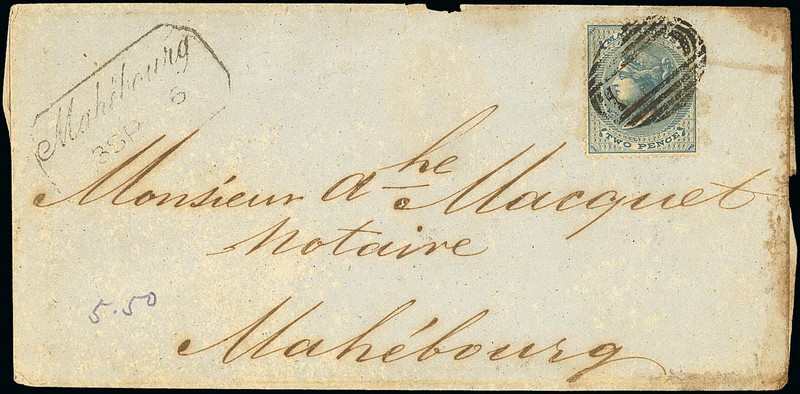 Mahébourg
3 SP 6
TWO PENCE
Monsieur Ahe Macquet
Notaire
5.50
Mahébourg